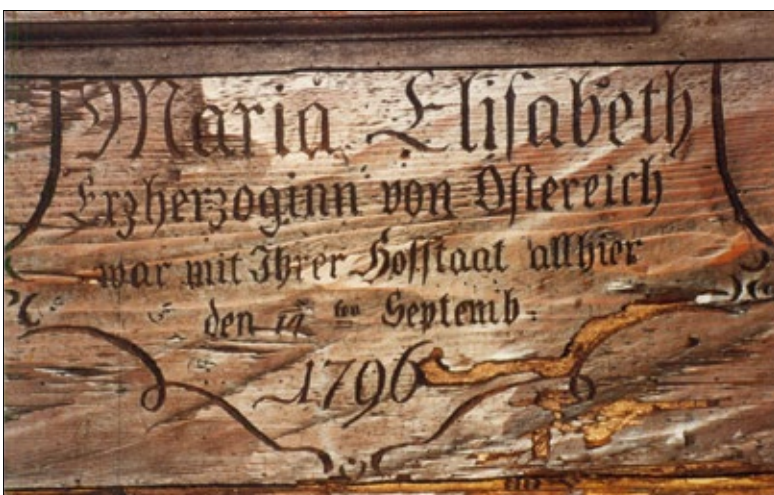 Maria Elisabeth
Erzherzoginn von Östereich
war mit Ihrer Hofstaat allhier
den 14 ten Septemb.
1796